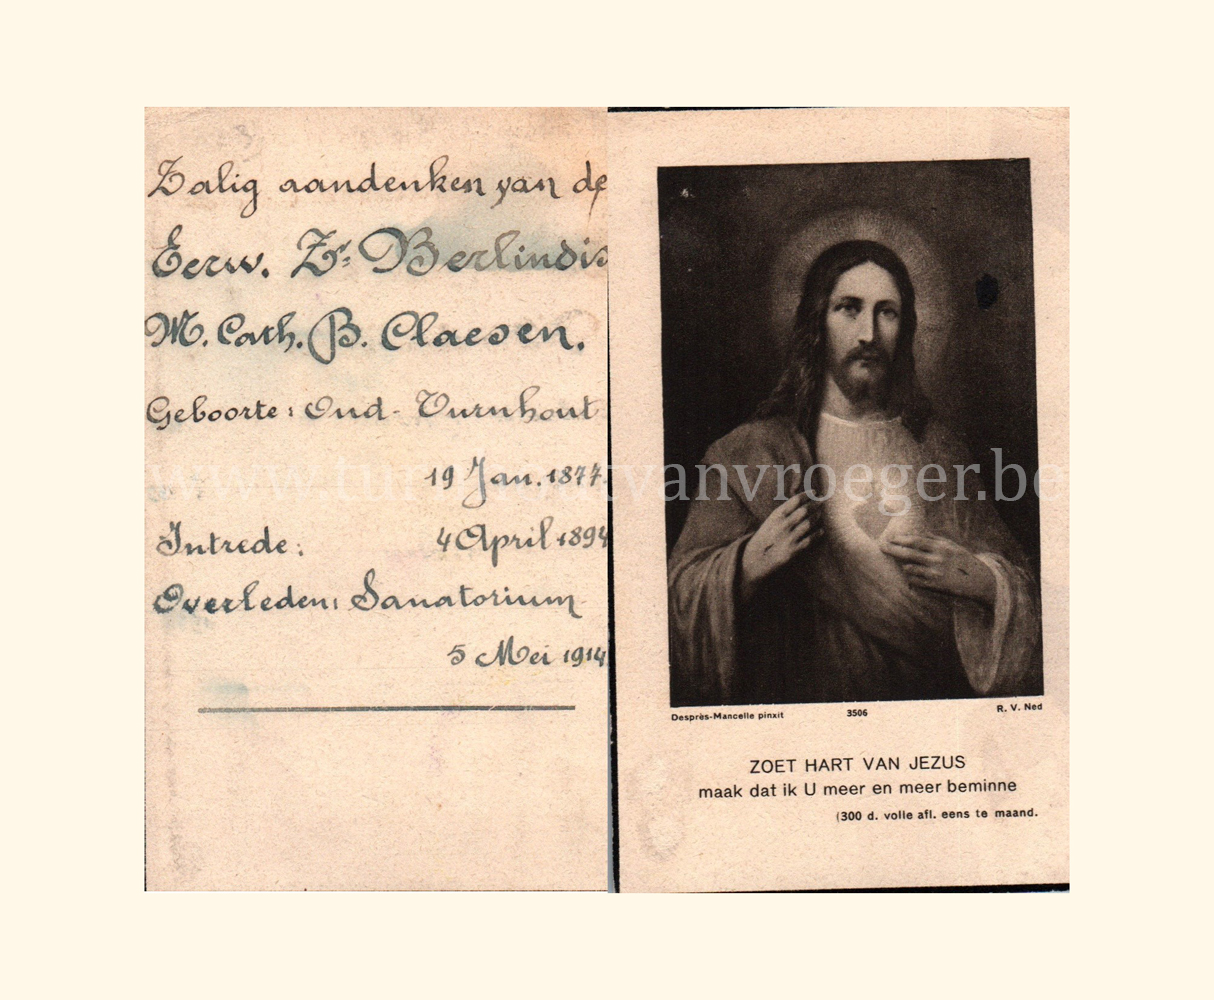 Zalig aandenken van de
Eerw. Zr. Berlindis
M. Cath. B. Claesen.
Geboorte: Oud-Turnhout
19 Jan. 1877.
Intrede: 4 April 1894
Overleden: Sanatorium
5 Mei 1914
www.turnhoutvanvroeger.be
Desprès-Mancelle pinxit 3506 R. V. Ned
ZOET HART VAN JEZUS
maak dat ik U meer en meer beminne
(300 d. volle afl. eens te maand.